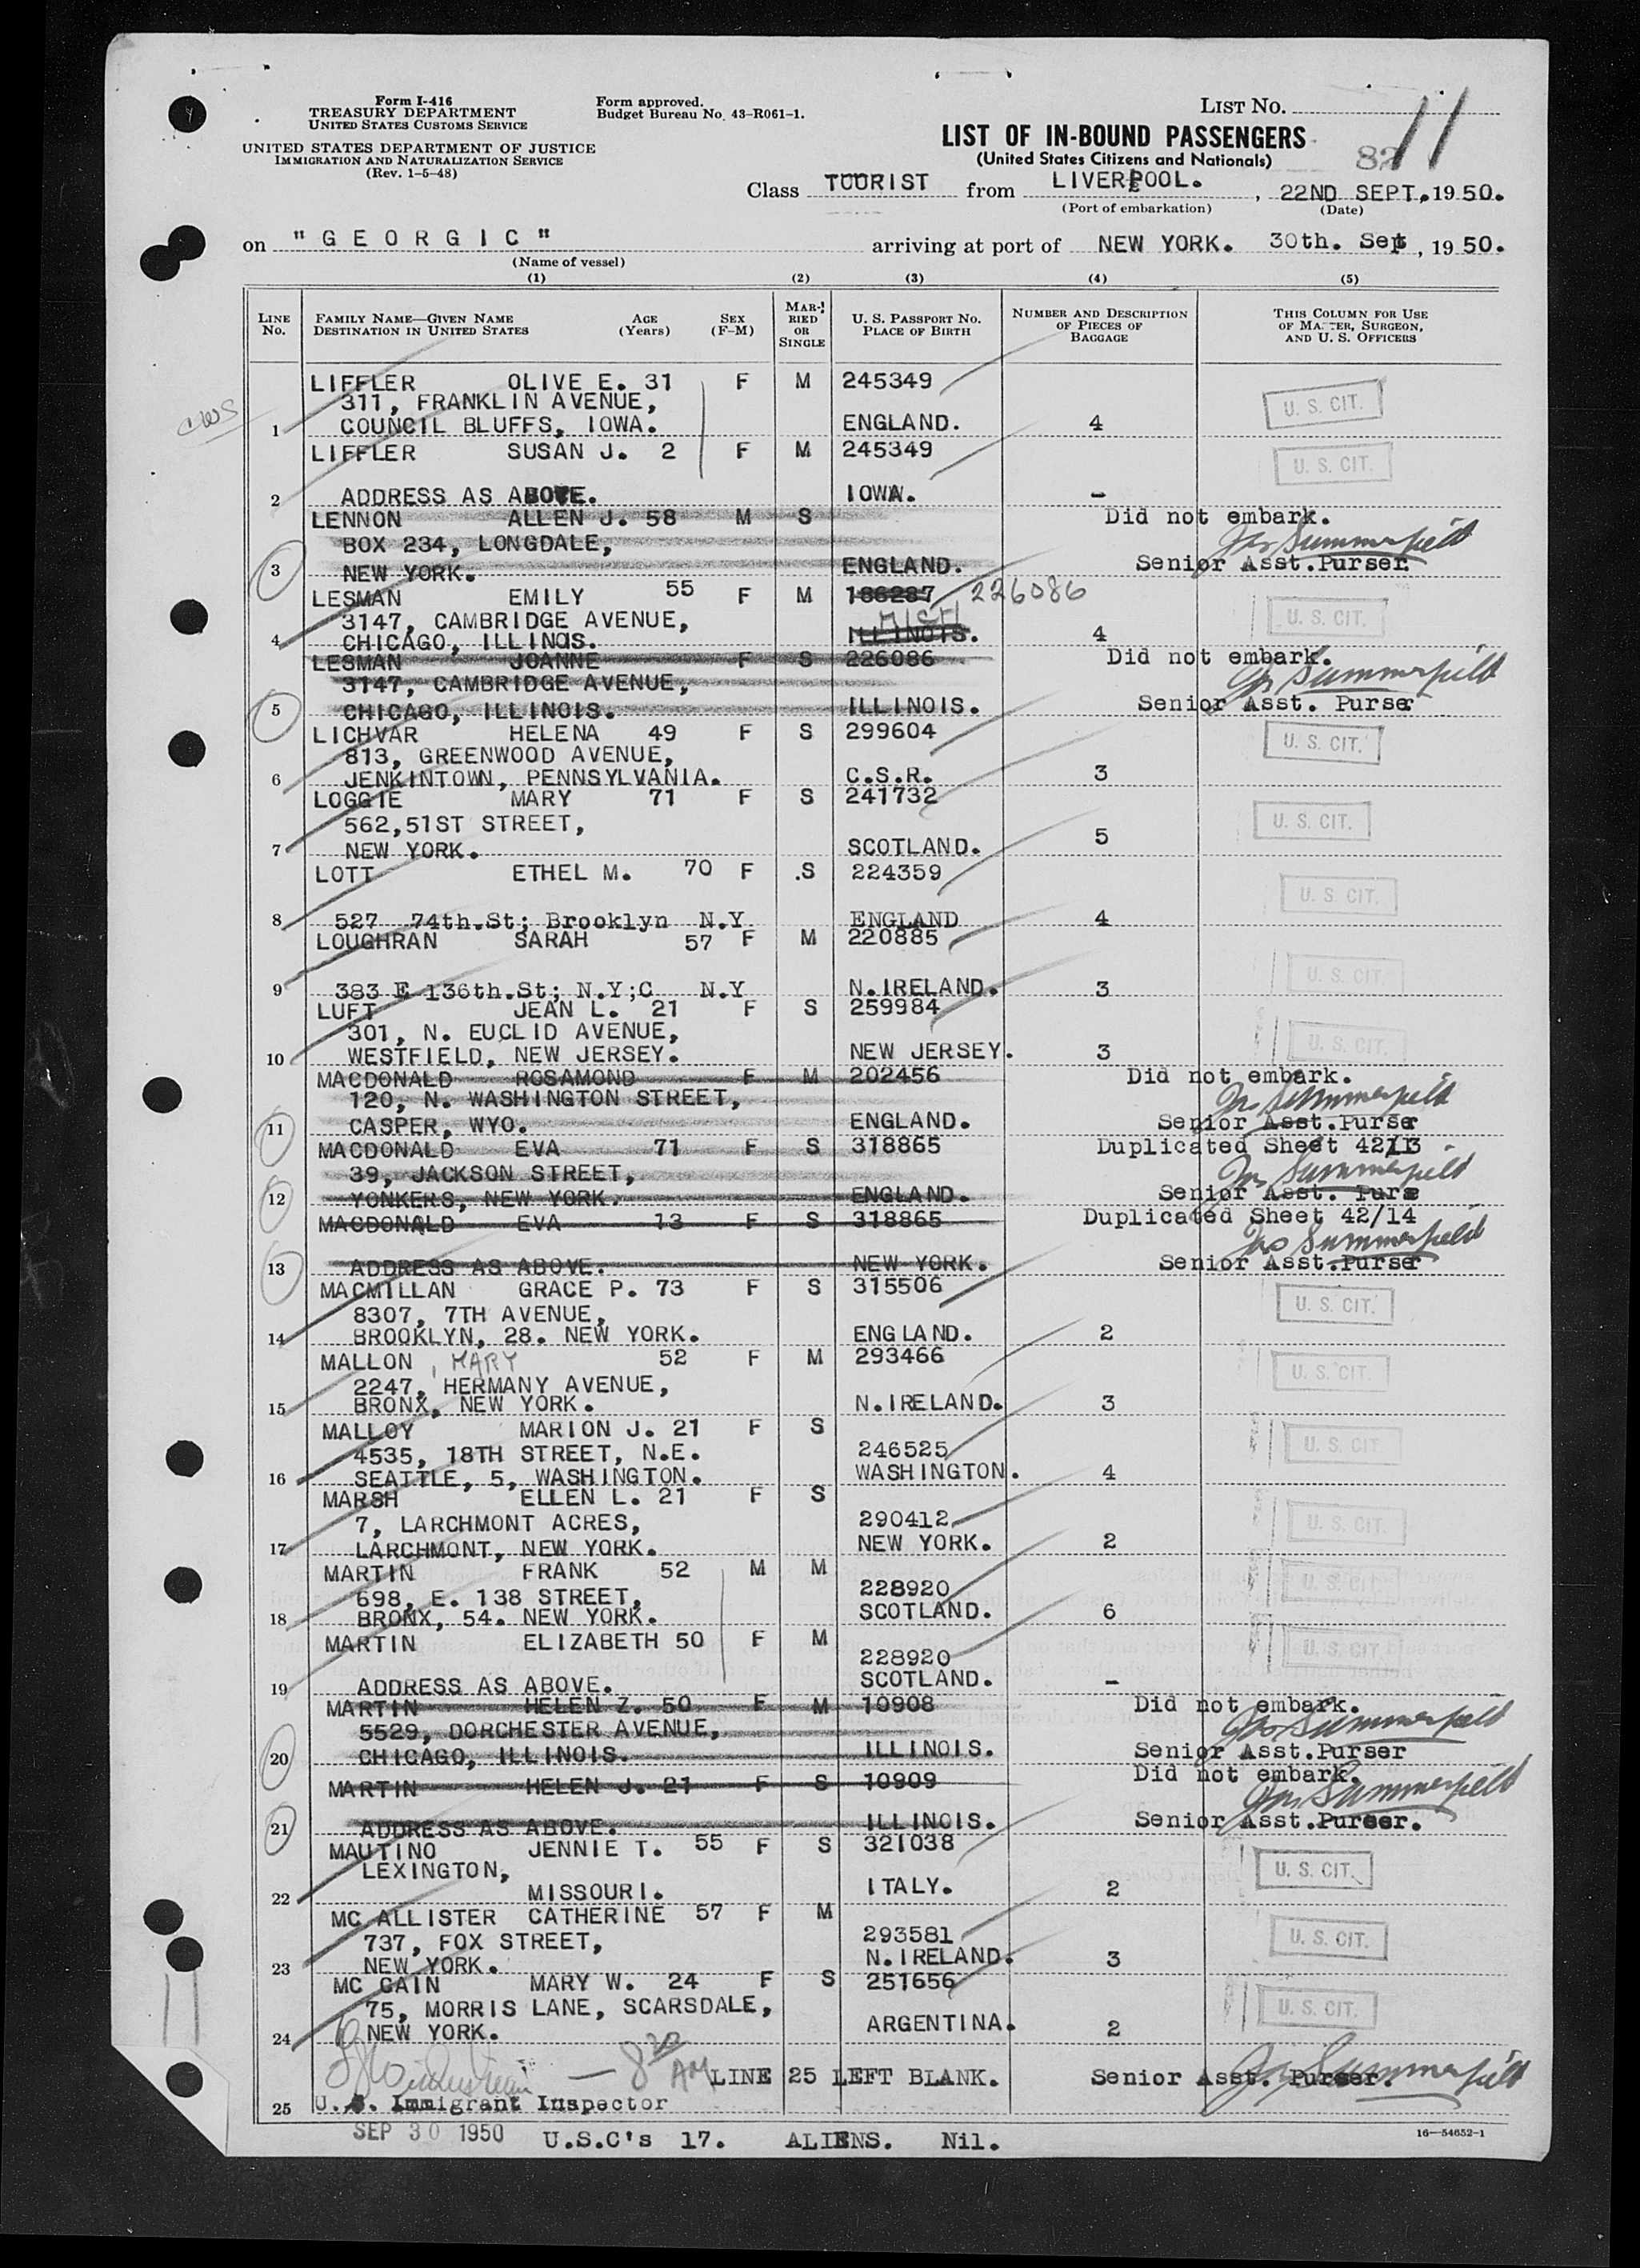 Form I-416
TREASURY DEPARTMENT
UNITED STATES CUSTOMS SERVICE
UNITED STATES DEPARTMENT OF JUSTICE
IMMIGRATION AND NATURALIZATION SERVICE
(Rev. 1-5-48)
Form approved.
Budget Bureau No. 43-R061-1.
LIST NO. 11
LIST OF IN-BOUND PASSENGERS
(United States Citizens and Nationals)
82
Class TOURIST from LIVERPOOL. , 22ND SEPT. 1950.
(Port of embarkation) (Date)
on "GEORGIC" arriving at port of NEW YORK. 30th. Sept, 1950.
(Name of vessel)
(1) (2) (3) (4) (5)
LINE No. FAMILY NAME—GIVEN NAME DESTINATION IN UNITED STATES AGE (Years) SEX (F-M) MARRIED OR SINGLE U. S. PASSPORT NO. PLACE OF BIRTH NUMBER AND DESCRIPTION OF PIECES OF BAGGAGE THIS COLUMN FOR USE OF MASTER, SURGEON, AND U. S. OFFICERS
LIFFLER OLIVE E. 31 F M 245349
311, FRANKLIN AVENUE, U. S. CIT.
1 COUNCIL BLUFFS, IOWA. ENGLAND. 4
LIFFLER SUSAN J. 2 F M 245349
U. S. CIT.
2 ADDRESS AS ABOVE. IOWA. -
LENNON ALLEN J. 58 M S Did not embark.
BOX 234, LONGDALE, Jas Summerfield
3 NEW YORK. ENGLAND. Senior Asst.Purser
LESMAN EMILY 55 F M 186287 226086
3147, CAMBRIDGE AVENUE, U. S. CIT.
4 CHICAGO, ILLINOIS. ILLINOIS. 4
LESMAN JOANNE F S 226086 Did not embark.
3147, CAMBRIDGE AVENUE, Jas Summerfield
5 CHICAGO, ILLINOIS. ILLINOIS. Senior Asst. Purser
LICHVAR HELENA 49 F S 299604
813, GREENWOOD AVENUE, U. S. CIT.
6 JENKINTOWN, PENNSYLVANIA. C.S.R. 3
LOGGIE MARY 71 F S 241732
562,51ST STREET, U. S. CIT.
7 NEW YORK. SCOTLAND. 5
LOTT ETHEL M. 70 F .S 224359
U. S. CIT.
8 527 74th.St; Brooklyn N.Y ENGLAND 4
LOUGHRAN SARAH 57 F M 220885
U. S. CIT
9 383 E 136th.St; N.Y;C N.Y N.IRELAND. 3
LUFT JEAN L. 21 F S 259984
301, N. EUCLID AVENUE, U. S. CIT.
10 WESTFIELD, NEW JERSEY. NEW JERSEY. 3
MACDONALD ROSAMOND F M 202456 Did not embark.
120, N. WASHINGTON STREET, Jas Summerfield
11 CASPER, WYO. ENGLAND. Senior Asst.Purser
MACDONALD EVA 71 F S 318865 Duplicated Sheet 42/13
39, JACKSON STREET, Jas Summerfield
12 YONKERS, NEW YORK. ENGLAND. Senior Asst. Purse
MACDONALD EVA 13 F S 318865 Duplicated Sheet 42/14
Jas Summerfield
13 ADDRESS AS ABOVE. NEW YORK. Senior Asst.Purser
MACMILLAN GRACE P. 73 F S 315506
8307, 7TH AVENUE, U. S. CIT.
14 BROOKLYN, 28. NEW YORK. ENGLAND. 2
MALLON, MARY 52 F M 293466
2247, HERMANY AVENUE, U. S. CIT.
15 BRONX, NEW YORK. N.IRELAND. 3
MALLOY MARION J. 21 F S
4535, 18TH STREET, N.E. 246525 U. S. CIT
16 SEATTLE, 5, WASHINGTON. WASHINGTON. 4
MARSH ELLEN L. 21 F S
7, LARCHMONT ACRES, 290412 U. S. CIT.
17 LARCHMONT, NEW YORK. NEW YORK. 2
MARTIN FRANK 52 M M
698, E. 138 STREET, 228920 U. S. CIT.
18 BRONX, 54. NEW YORK. SCOTLAND. 6
MARTIN ELIZABETH 50 F M
228920 U. S. CIT
19 ADDRESS AS ABOVE. SCOTLAND. -
MARTIN HELEN Z. 50 F M 10908 Did not embark.
5529, DORCHESTER AVENUE, Jas Summerfield
20 CHICAGO, ILLINOIS. ILLINOIS. Senior Asst.Purser
MARTIN HELEN J. 21 F S 10909 Did not embark.
Jas Summerfield
21 ADDRESS AS ABOVE. ILLINOIS. Senior Asst.Purser.
MAUTINO JENNIE T. 55 F S 321038
LEXINGTON, U. S. CIT.
22 MISSOURI. ITALY. 2
MC ALLISTER CATHERINE 57 F M
737, FOX STREET, 293581 U. S. CIT.
23 NEW YORK. N.IRELAND. 3
MC CAIN MARY W. 24 F S 251656
75, MORRIS LANE, SCARSDALE, U. S. CIT.
24 NEW YORK. ARGENTINA. 2
— 8 30 AM LINE 25 LEFT BLANK. Senior Asst. Purser. Jas Summerfield
25 U.S. Immigrant Inspector
SEP 30 1950 U.S.C's 17. ALIENS. Nil.
16—54652-1